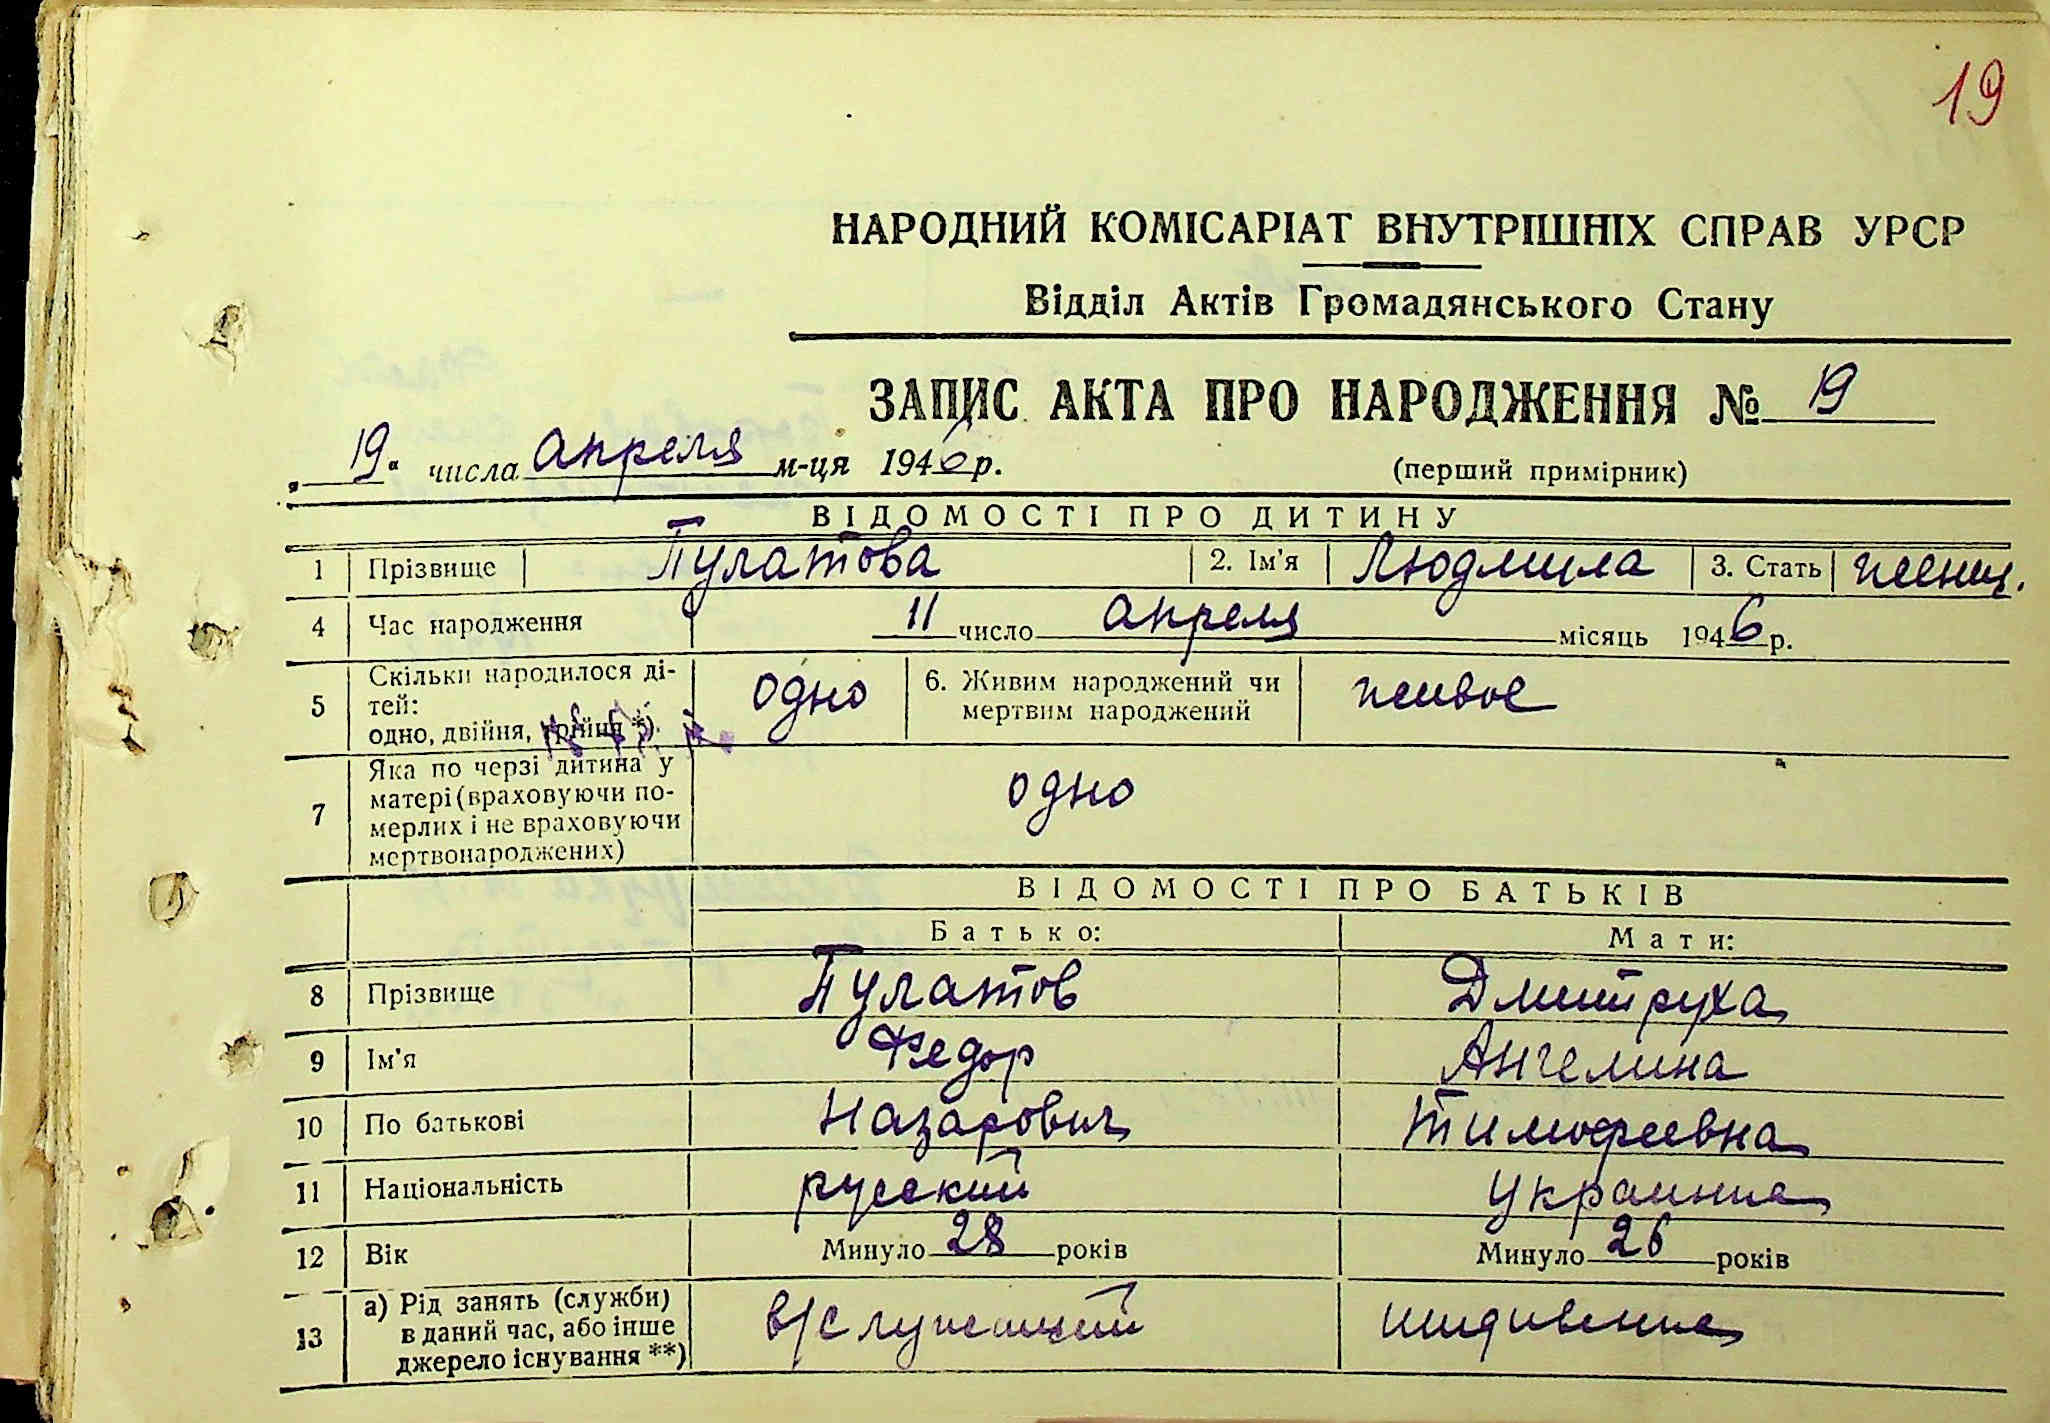 19
НАРОДНИЙ КОМІСАРІАТ ВНУТРІШНІХ СПРАВ УРСР
Відділ Актів Громадянського Стану
ЗАПИС АКТА ПРО НАРОДЖЕННЯ № 19
„19“ числа апреля м-ця 1946 р.
(перший примірник)
ВІДОМОСТІ ПРО ДИТИНУ
1 Прізвище Пулатова 2. Ім'я Людмила 3. Стать женщ.
4 Час народження 11 число апреля місяць 1946 р.
5 Скільки народилося ді-
тей:
одно, двійня, трійня *) одно 6. Живим народжений чи
мертвим народжений живое
7 Яка по черзі дитина у
матері (враховуючи по-
мерлих і не враховуючи
мертвонароджених) одно
ВІДОМОСТІ ПРО БАТЬКІВ
Батько: Мати:
8 Прізвище Пулатов Дмитруха
9 Ім'я Федор Ангелина
10 По батькові Назарович Тимофеевна
11 Національність русский украинка
12 Вік Минуло 28 років Минуло 26 років
13 а) Рід занять (служби)
в даний час, або інше
джерело існування **) в/служащий иждивенка